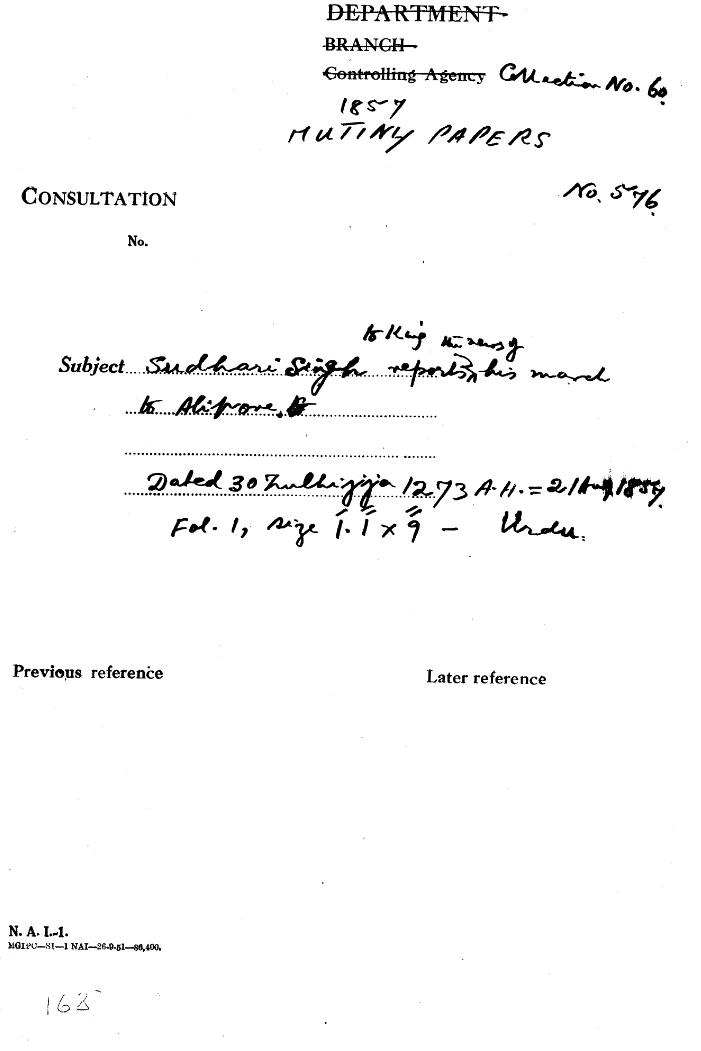 DEPARTMENT
BRANCH
Controlling Agency Collection No. 60.
1857
MUTINY PAPERS
CONSULTATION
No. 576.
No.
to King the news of
Subject Sudhari Singh reports his march
to Alipore.
Dated 30 Zulhijja 1273 A.H. = 21 Aug 1857.
Fol. 1, size 1.1 x 9 — Urdu.
Previous reference
Later reference
N. A. I.-1.
MGIPC—S1—1 NAI—26-9-51—86,400.